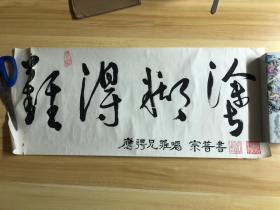 難得糊塗
應兄雅囑 宗普書